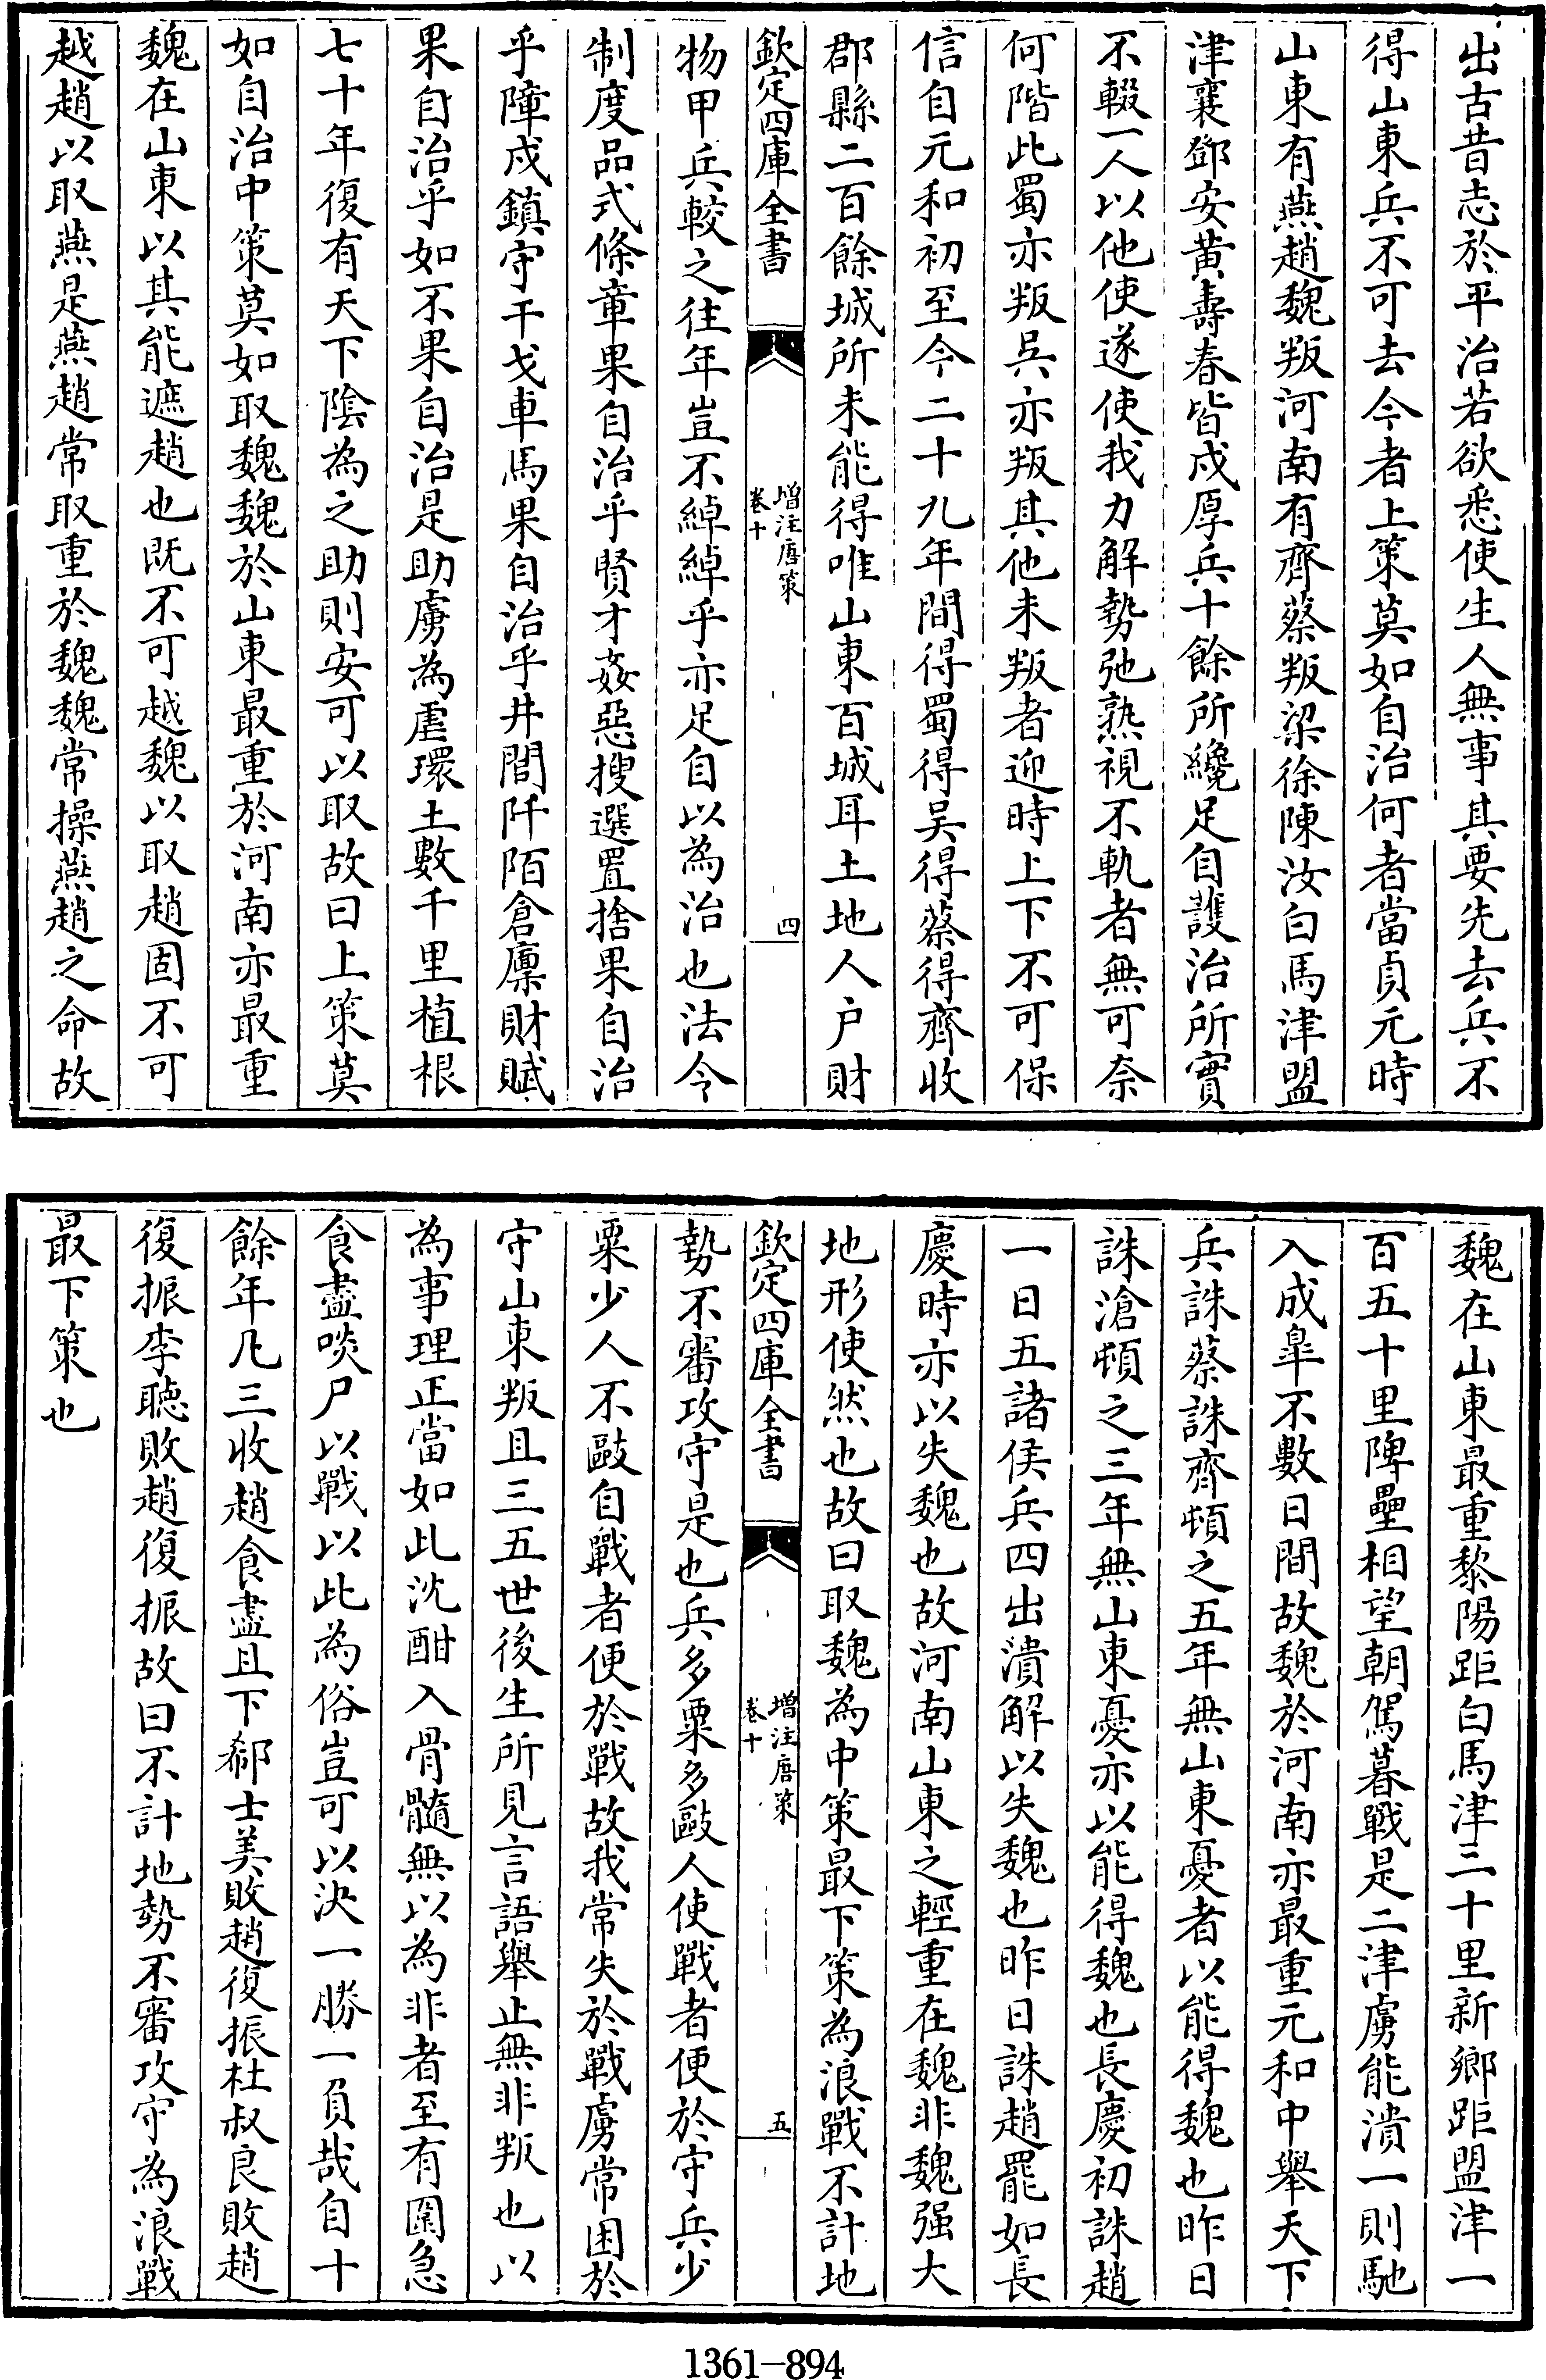 出古昔志於平治若欲悉使生人無事其要先去兵不
得山東兵不可去今者上策莫如自治何者當貞元時
山東有燕趙魏叛河南有齊蔡叛梁徐陳汝白馬津盟
津襄鄧安黄壽春皆戍厚兵十餘所纔足自護治所實
不輟一人以他使遂使我力解勢弛熟視不軌者無可奈
何階此蜀亦叛吳亦叛其他未叛者迎時上下不可保
信自元和初至今二十九年間得蜀得吳得蔡得齊收
郡縣二百餘城所未能得唯山東百城耳土地人户財
欽定四庫全書
增注唐策
卷十
四
物甲兵較之往年豈不綽綽乎亦足自以為治也法令
制度品式條章果自治乎賢才姦惡搜選置捨果自治
乎障戍鎮守干戈車馬果自治乎井閭阡陌倉廪財賦
果自治乎如不果自治是助虜為虐環土數千里植根
七十年復有天下陰為之助則安可以取故曰上策莫
如自治中策莫如取魏魏於山東最重於河南亦最重
魏在山東以其能遮趙也既不可越魏以取趙固不可
越趙以取燕是燕趙常取重於魏魏常操燕趙之命故
魏在山東最重黎陽距白馬津三十里新鄉距盟津一
百五十里陴壘相望朝駕暮戰是二津虜能潰一則馳
入成臯不數日間故魏於河南亦最重元和中舉天下
兵誅蔡誅齊頓之五年無山東憂者以能得魏也昨日
誅滄頓之三年無山東憂亦以能得魏也長慶初誅趙
一日五諸侯兵四出潰解以失魏也昨日誅趙罷如長
慶時亦以失魏也故河南山東之輕重在魏非魏强大
地形使然也故曰取魏為中策最下策為浪戰不計地
欽定四庫全書
增注唐策
卷十
五
勢不審攻守是也兵多粟多敺人使戰者便於守兵少
粟少人不敺自戰者便於戰故我常失於戰虜常困於
守山東叛且三五世後生所見言語舉止無非叛也以
為事理正當如此沈酣入骨髓無以為非者至有圍急
食盡啖尸以戰以此為俗豈可以决一勝一負哉自十
餘年凡三收趙食盡且下郗士美敗趙復振杜叔良敗趙
復振李聽敗趙復振故曰不計地勢不審攻守為浪戰
最下策也
1361-894